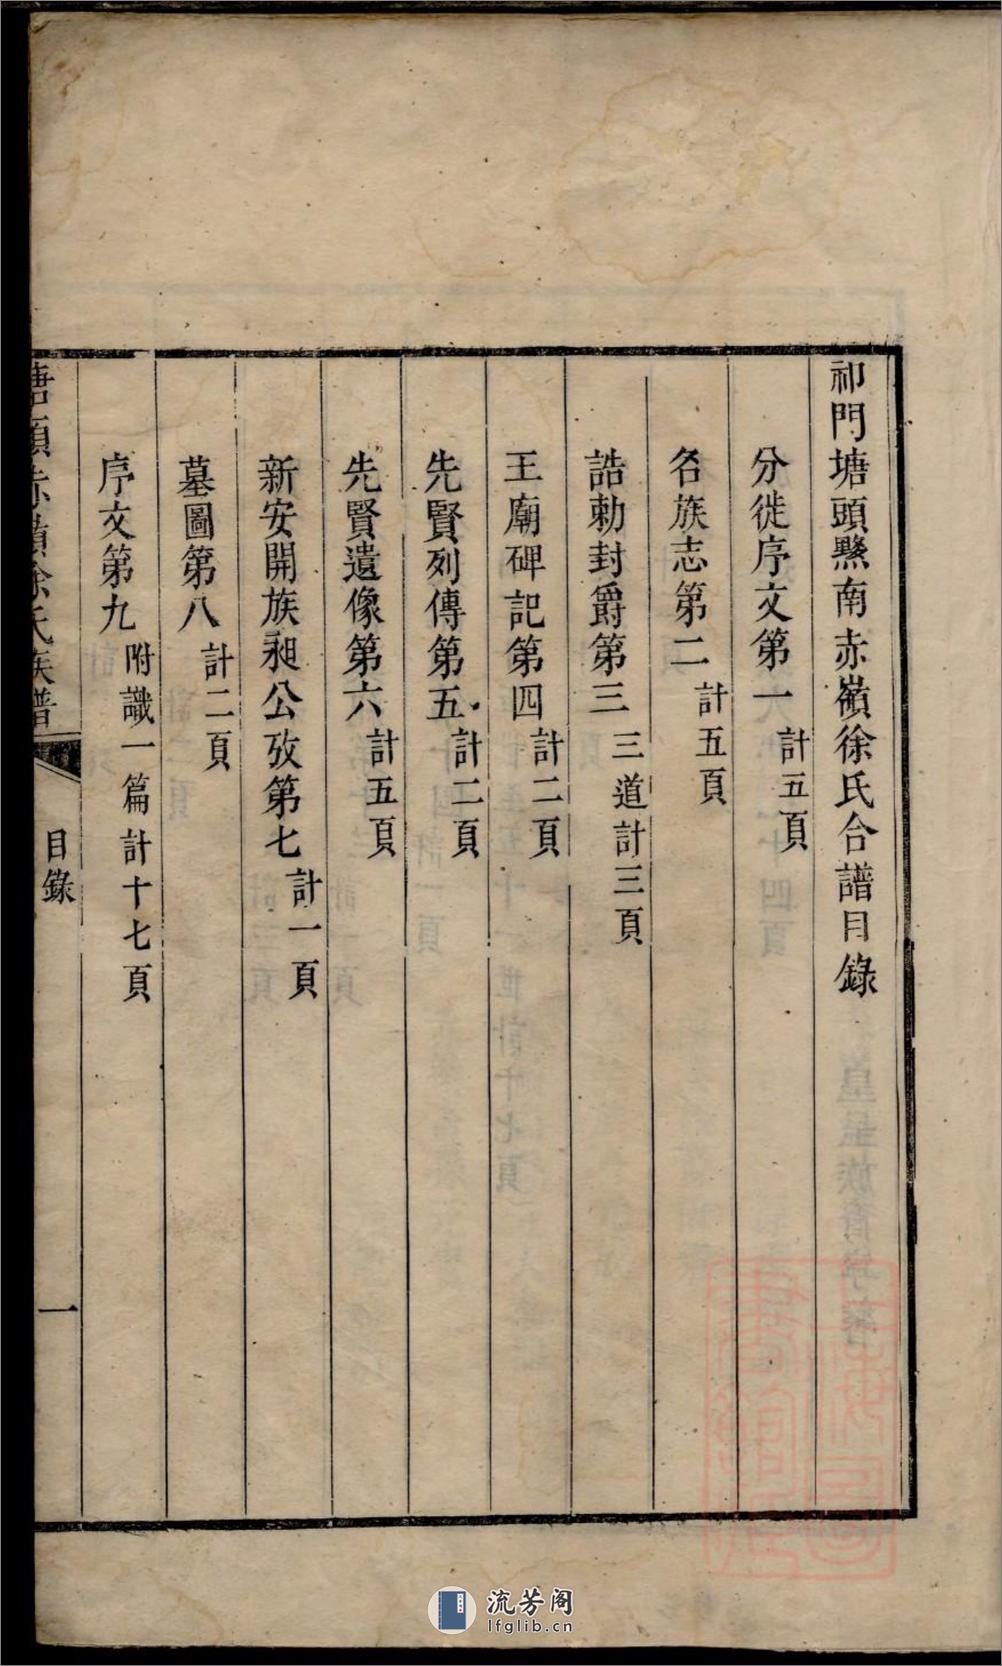 祁門塘頭黟南赤嶺徐氏合譜目錄
分徙序文第一計五頁
名族志第二計五頁
誥勅封爵第三三道計三頁
王廟碑記第四計二頁
先賢列傳第五計二頁
先賢遺像第六計五頁
新安開族昶公攷第七計一頁
墓圖第八計二頁
序文第九附識一篇計十七頁
塘頭赤嶺徐氏族譜
目錄
一
流芳阁
lfglib.cn